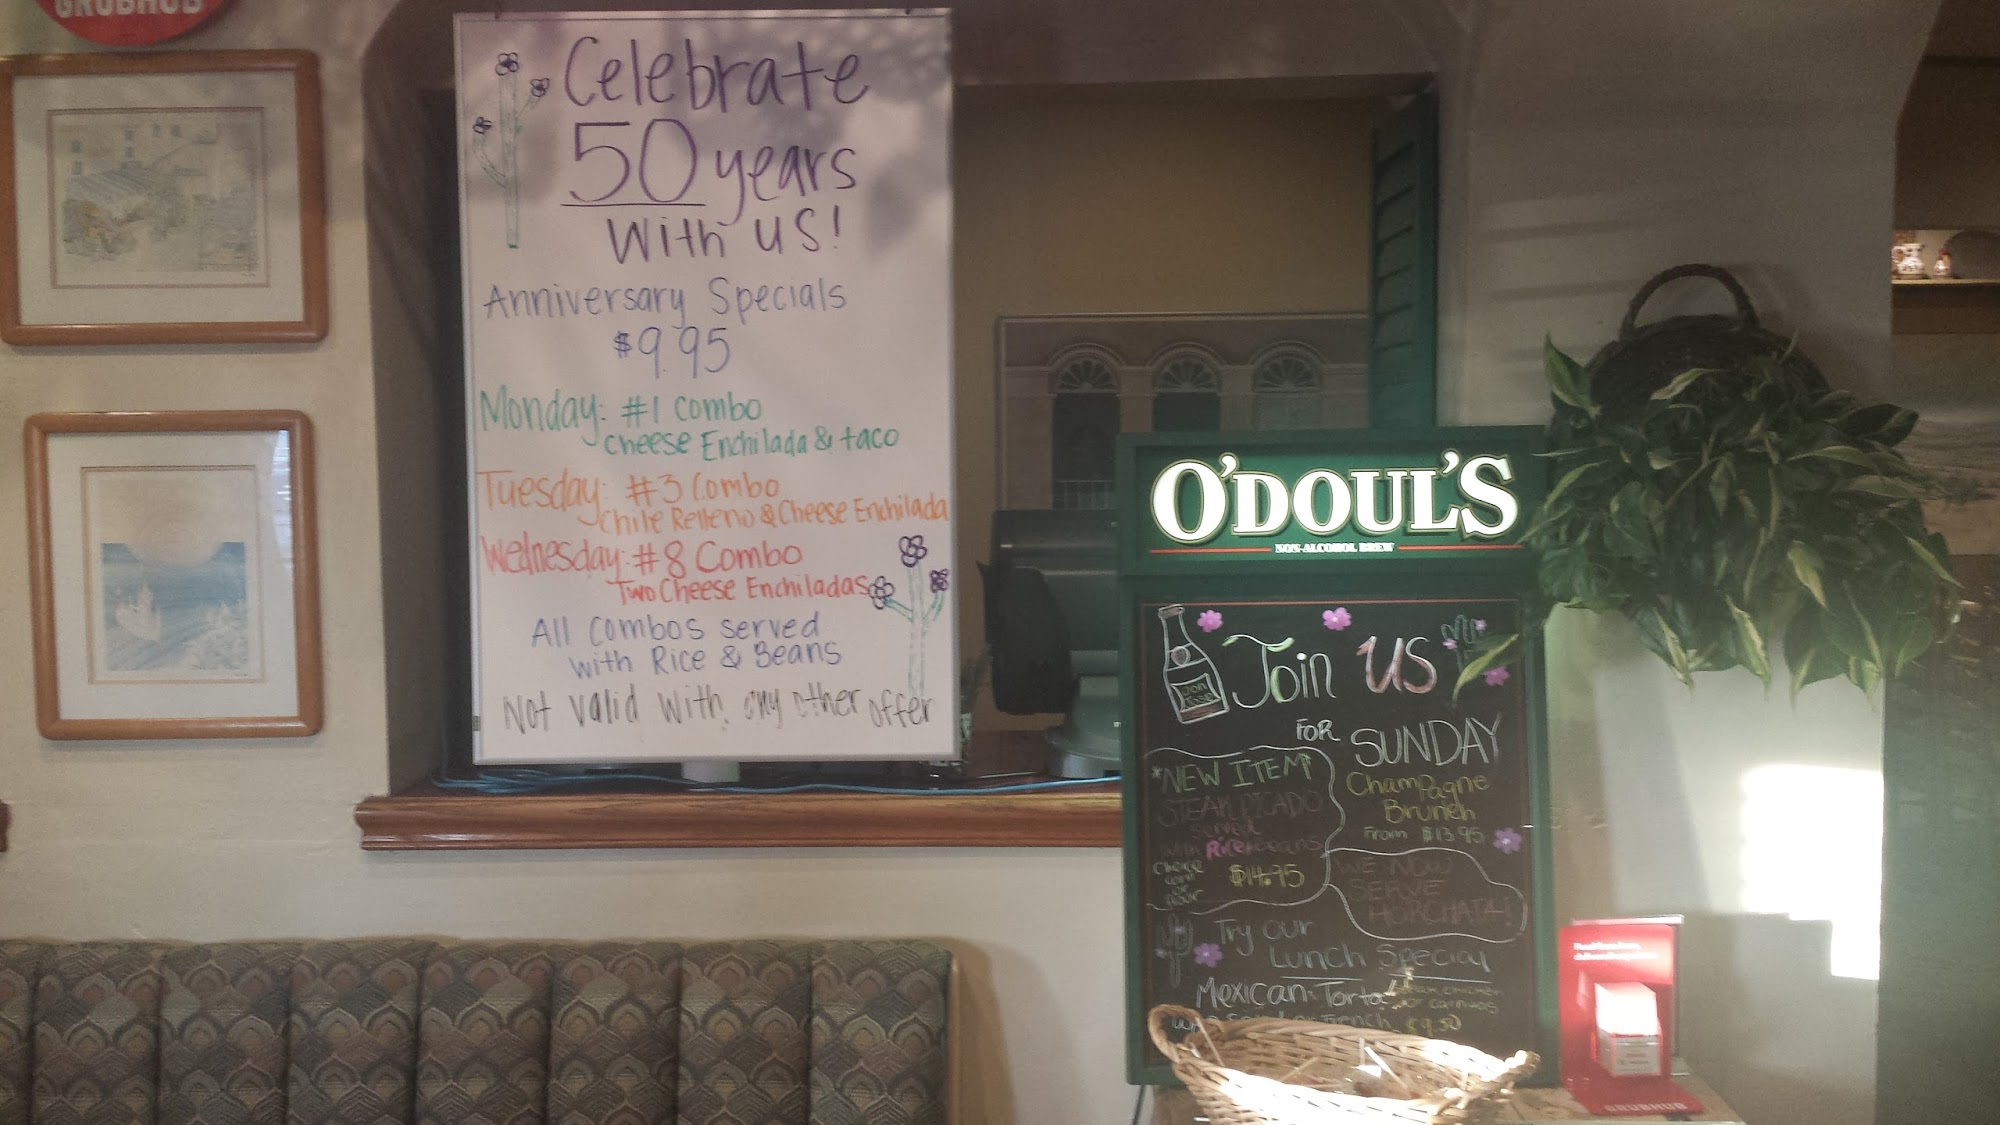 GRUBHUB
Celebrate
50 years
With us!
Anniversary Specials
$9.95
Monday: #1 combo
Cheese Enchilada & taco
Tuesday: #3 Combo
Chile Relleno & Cheese Enchilada
Wednesday: #8 Combo
Two Cheese Enchiladas
All combos served
with Rice & Beans
Not valid with any other offer
O'DOUL'S
NON-ALCOHOL BREW
Join us
FOR SUNDAY
Champagne
Brunch
From $13.95
*NEW ITEM
STEAK PICADO
served
with Rice & beans
$14.95
WE NOW
SERVE
HORCHATA!
Try our
Lunch Special
Mexican Torta
$9.50
GRUBHUB